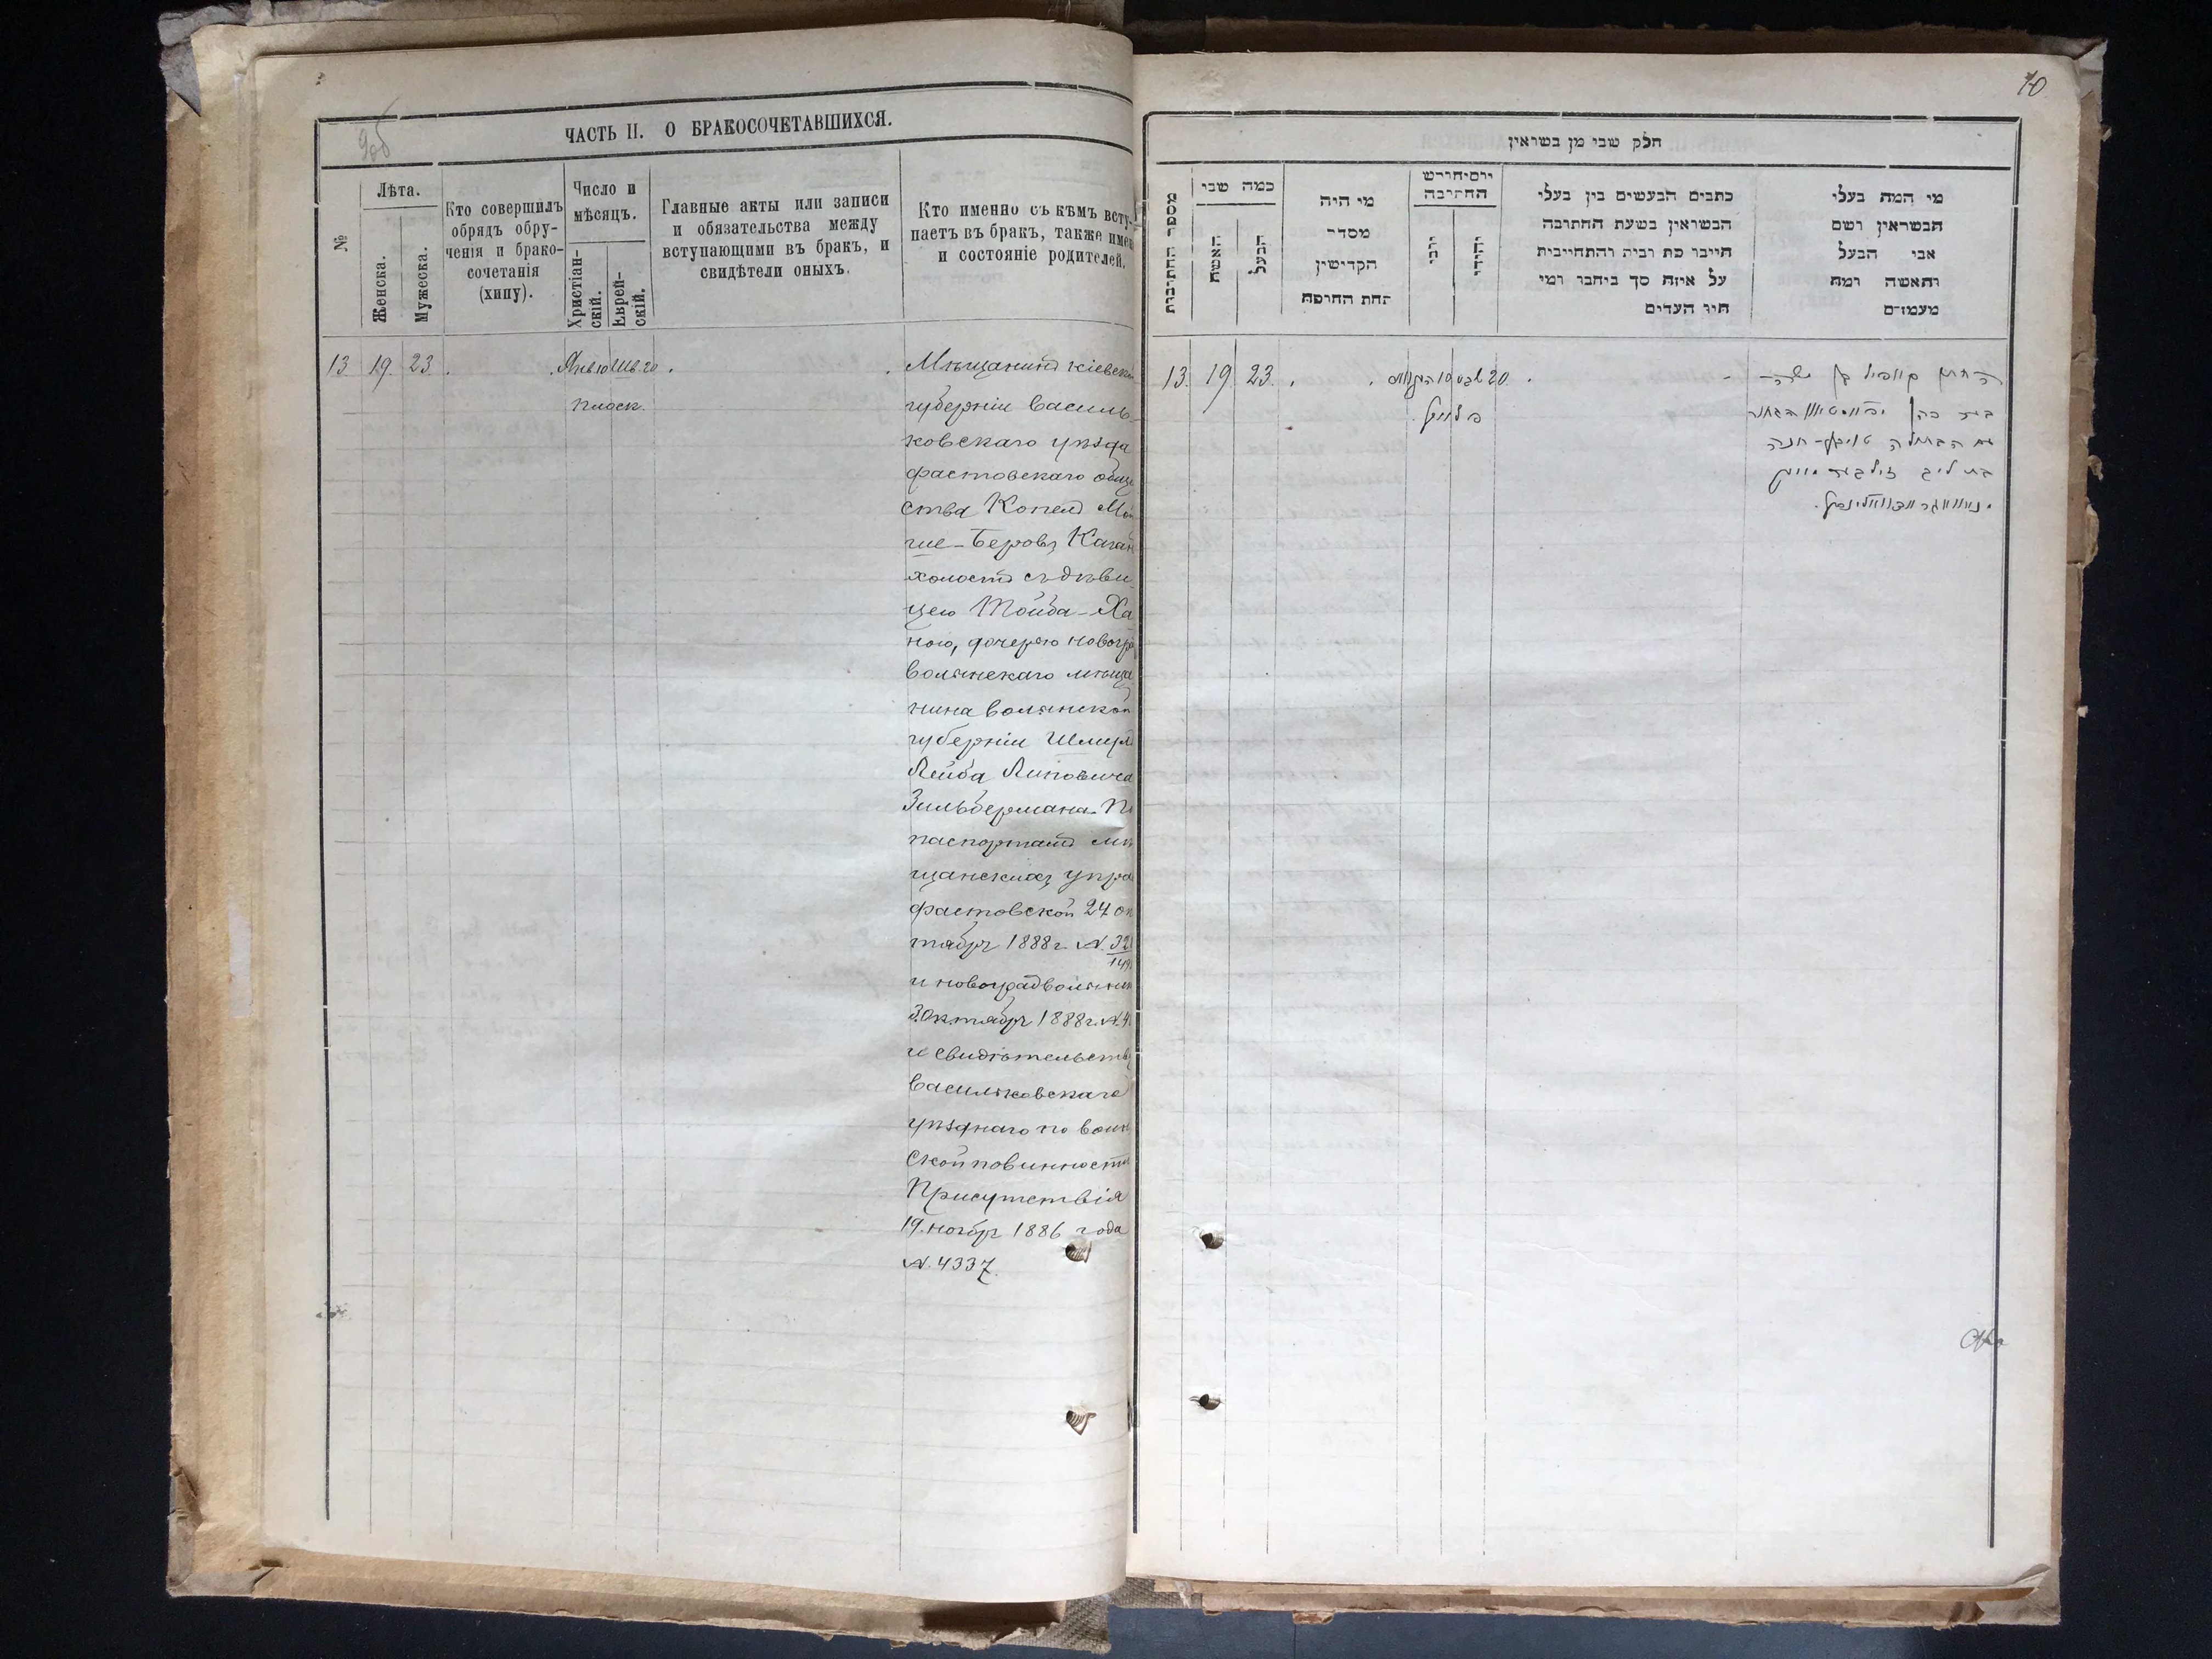 9об
ЧАСТЬ II. О БРАКОСОЧЕТАВШИХСЯ.
№
Лѣта.
Женска.
Мужеска.
Кто совершилъ
обрядъ обру-
ченія и брако-
сочетанія
(хипу).
Число и
мѣсяцъ.
Христіан-
скій.
Еврей-
скій.
Главные акты или записи
и обязательства между
вступающими въ бракъ, и
свидѣтели оныхъ.
Кто именно съ кѣмъ всту-
паетъ въ бракъ, также имен
и состояніе родителей.
13 19 23 . Янв 10 Шв. 20 . .
плоск.
Мѣщанинъ кіевской
губерніи Василь-
ковскаго уѣзда
фастовскаго обще
ства Копелъ Мой
ше-Беровъ Каган
холостъ съ дѣви
цею Тойба-Ха
ною, дочерью новогра
волынскаго мѣща
нина волынской
губерніи Шмуль
Лейба Липовича
Зильбермана. По
паспортамъ мѣ
щанскихъ упра
фастовской 24 ок
тября 1888 г. N. 321
149
и новоградволынск
3 октября 1888 г. N. 4
и свидѣтельству
Васильковскаго
уѣзднаго по воин
ской повинности
Присутствія
19. ноября 1886 года
N. 4337.
10
חלק שבי מן בשראין
מספר החתונות
כמה שבי
האשה
הבעל
מי היה
מסדר
הקדישין
תחת החופה
יום יחודש
החתיבה
יהודי
כתבים הבעשים בין בעלי
הבשראין בשעת החתובה
חייבו כת וביה והתחייבית
על איזה סך ביחבו ומי
חיו העדים
מי המה בעלי
הבשראין ושם
אבי הבעל
והאשה ומה
מעמדם
13. 19 23. . . 20 שבט 10 .
החתן קופיל בן משה-
בער כהן הבחור
עם הבתולה טויבע-חנה
בת ליב זילבערמאן